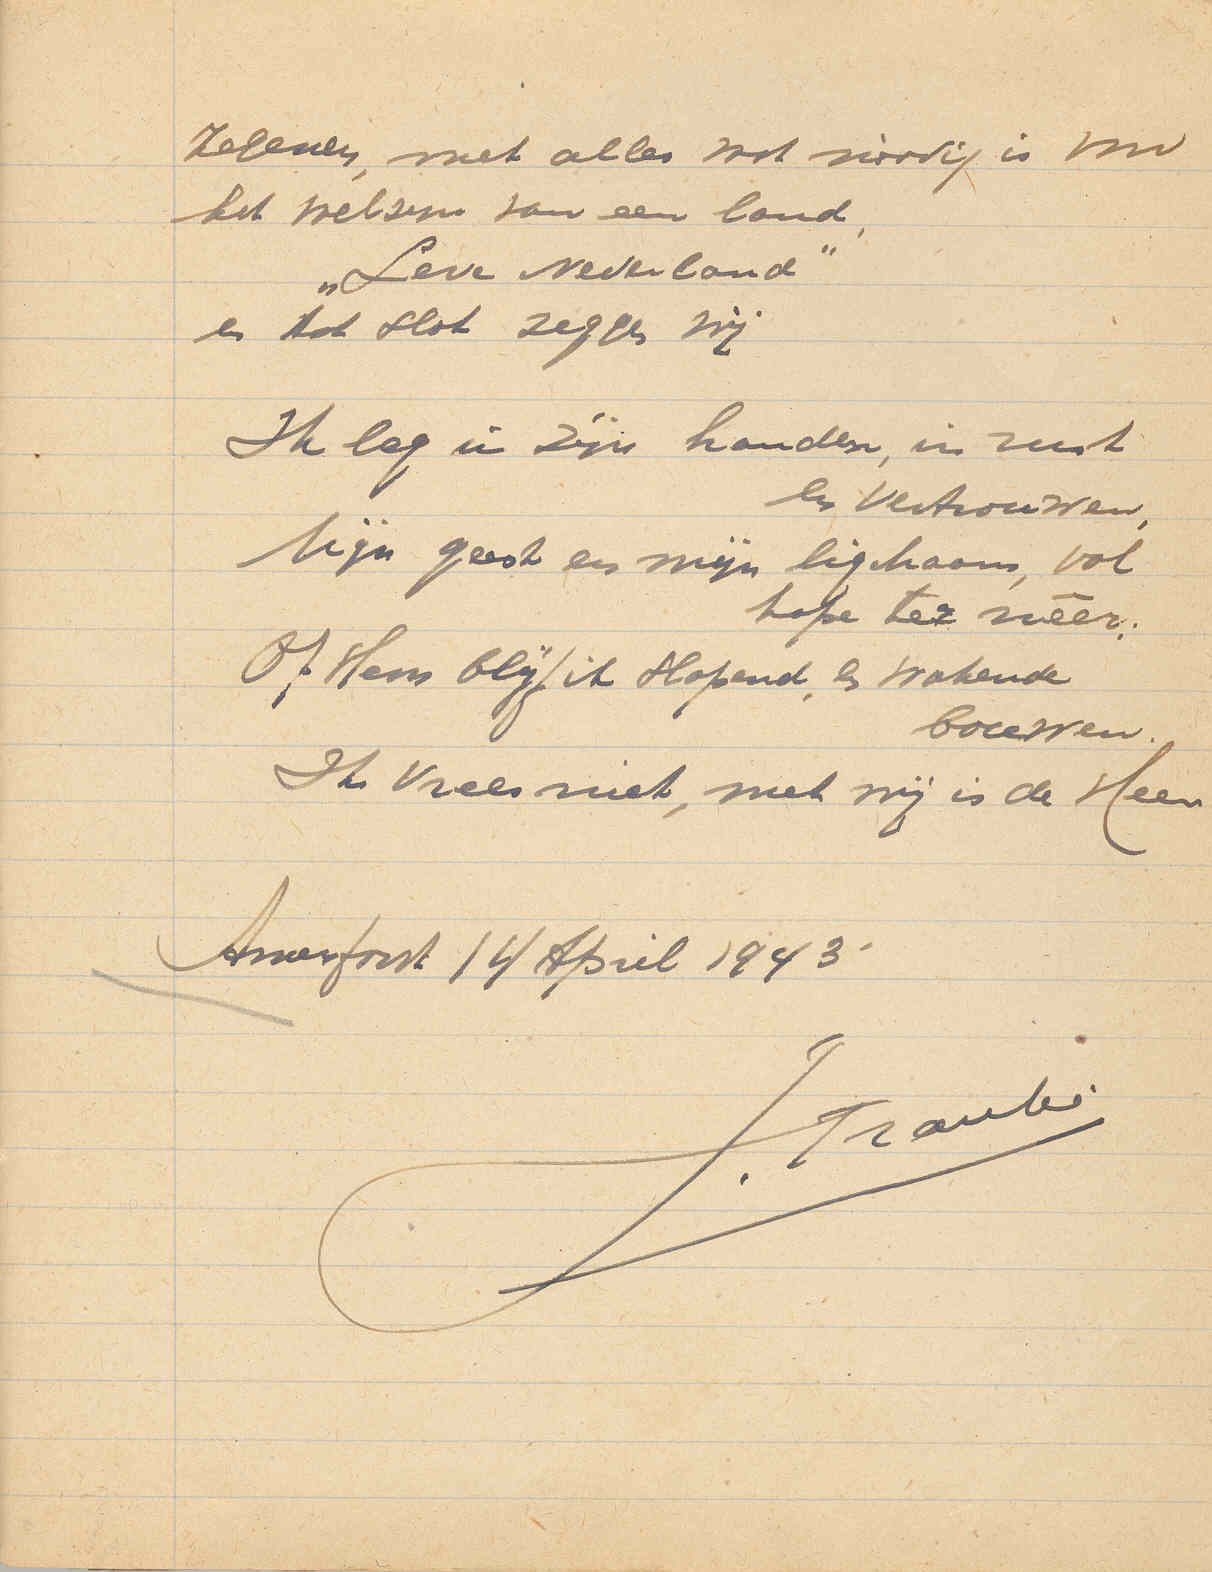 zegenen, met alles wat noodig is voor
het welzijn van een land,
„Leve Nederland"
en tot slot zeggen wij
Ik leg in zijn handen, in rust
en vertrouwen,
Mijn geest en mijn lighaam, vol
hope ter neêr;
Op Hem blijf ik slapend, en wakende
bouwen.
Ik vrees niet, met mij is de Heer
Amersfoort 14 April 1943.